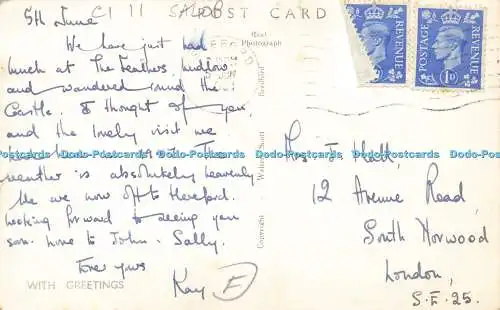 5th June C1 11 SALOP
POST CARD
We have just had
lunch at The Feathers, Ludlow
and wandered round the
Castle. I thought of you
and the lovely visit we
The
weather is absolutely heavenly
We are now off to Hereford.
Looking forward to seeing you
soon. Love to John & Sally.
Ever yours
Kay F
WITH GREETINGS
Real
Photograph
Copyright
Walter Scott
Bradford
POSTAGE
REVENUE
1D
REVENUE
1D
Mrs J Hatt,
12 Avenue Road,
South Norwood
London,
S.E. 25.
Dodo-Postcards Dodo-Postcards Dodo-Postcards Dodo-Postcards Dodo-Postcards